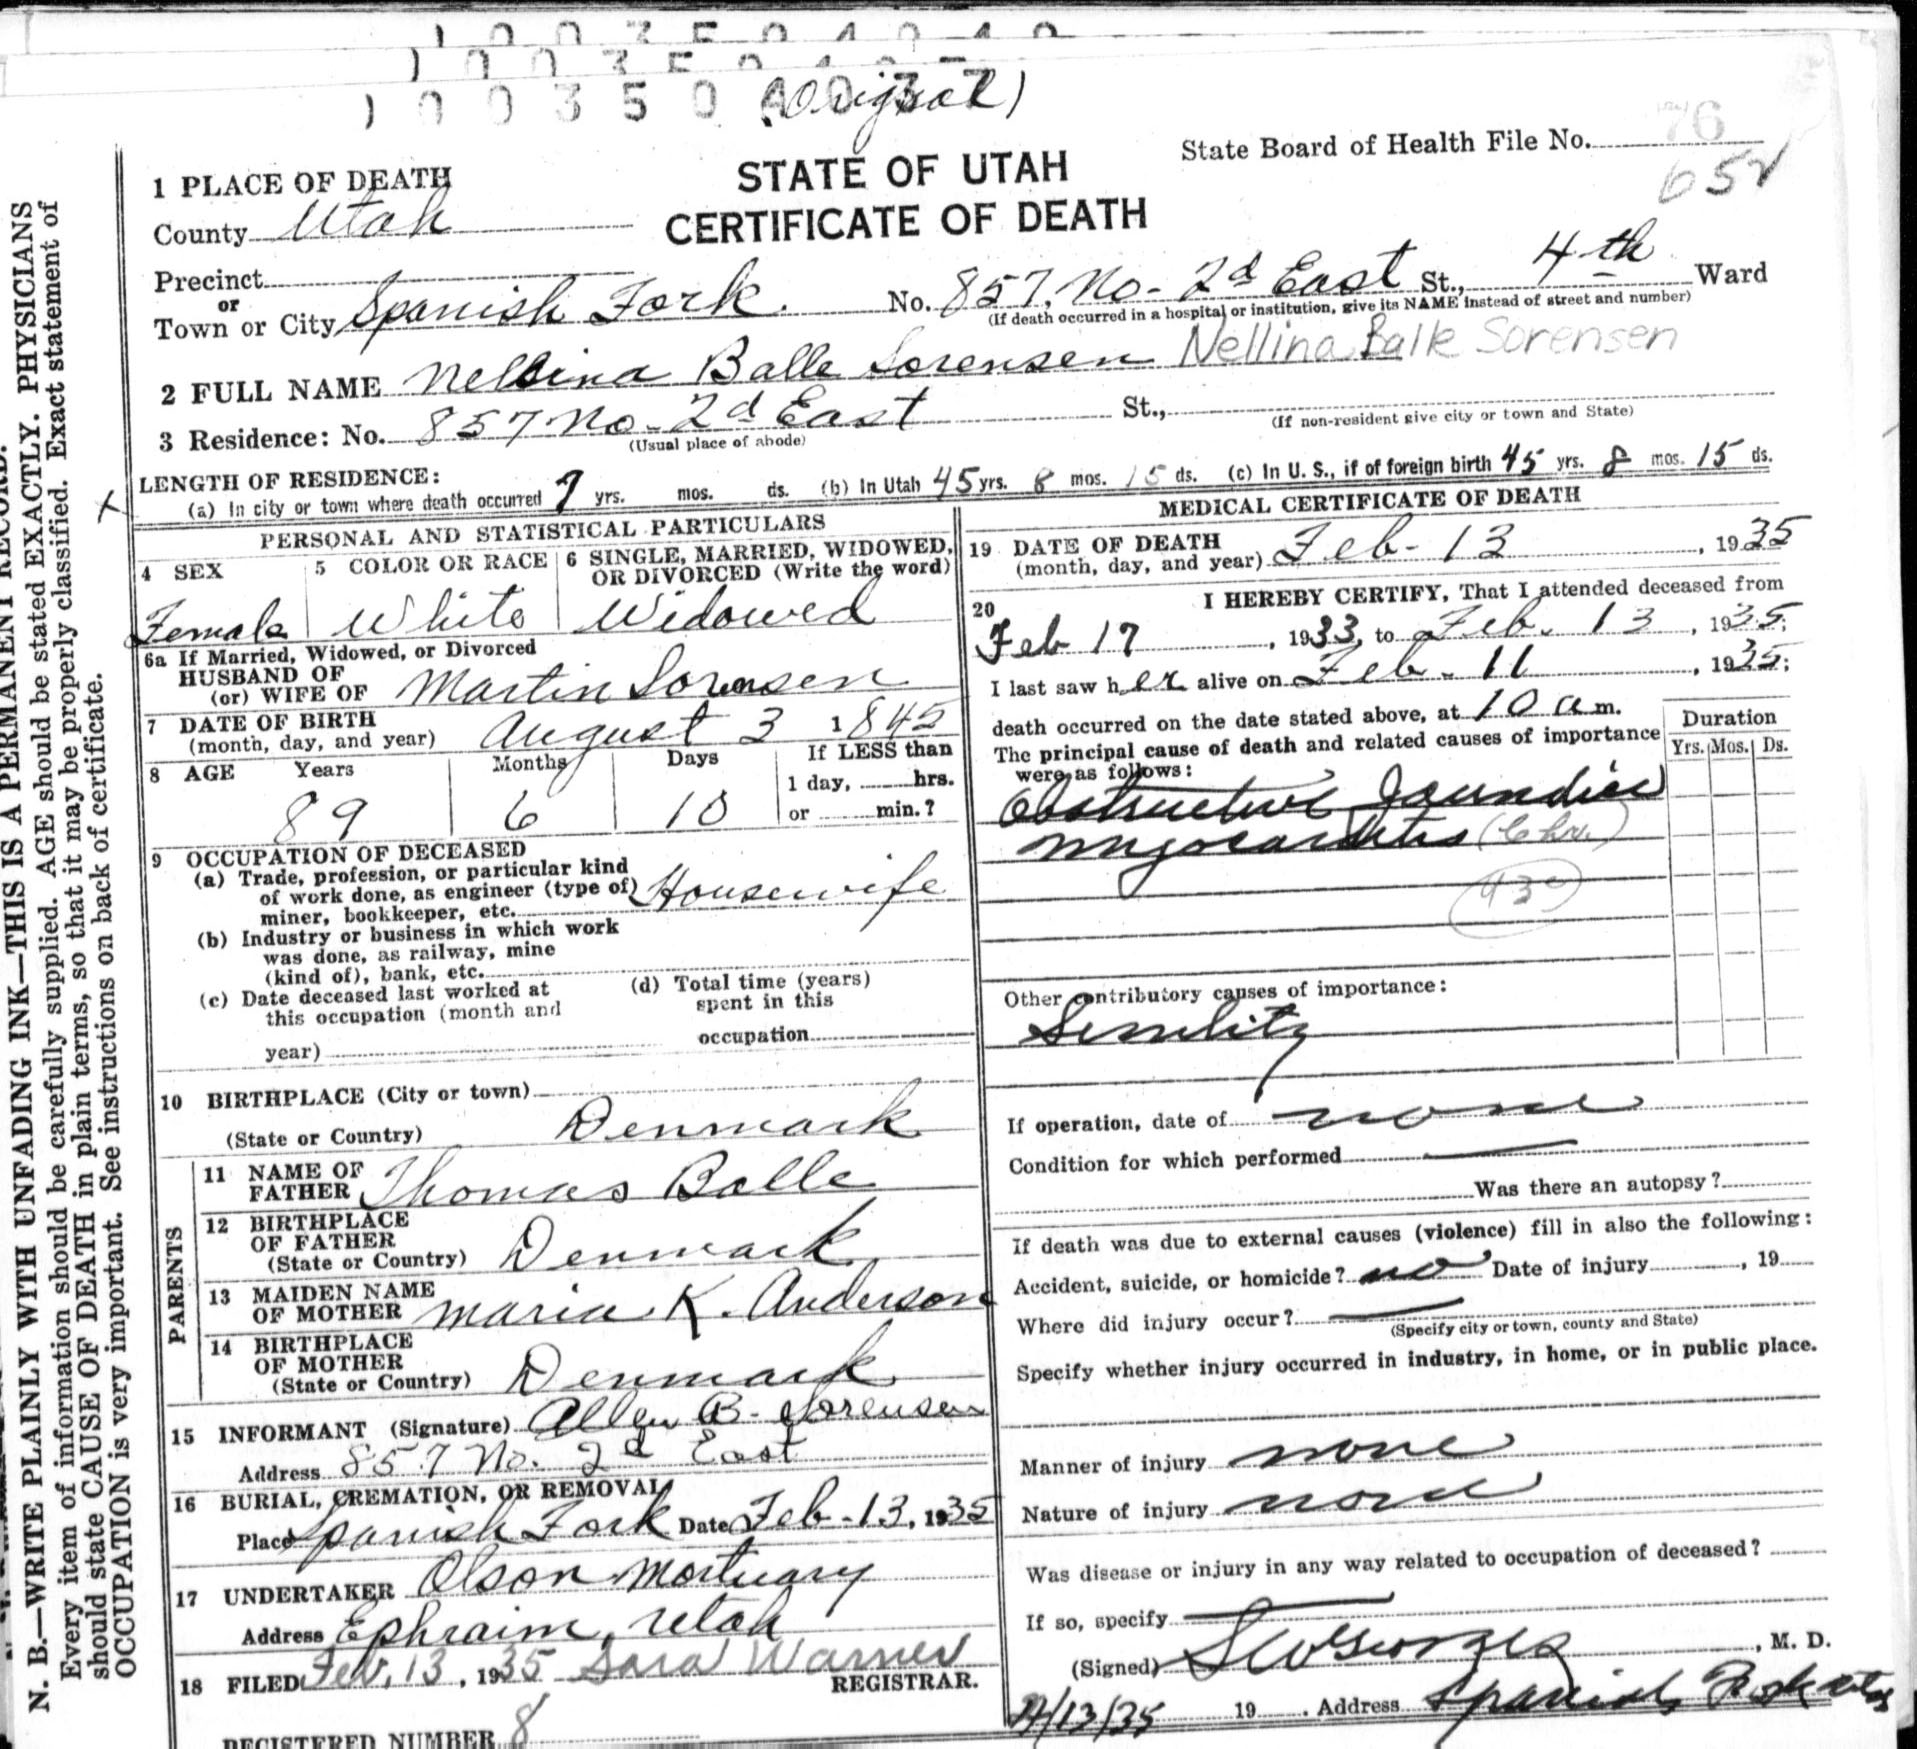 1 0 0 3 5 0 4 0 3 7
(Original)
State Board of Health File No. 76
652
STATE OF UTAH
CERTIFICATE OF DEATH
1 PLACE OF DEATH
County Utah
Precinct
or
Town or City Spanish Fork. No. 857, No- 2d East St., 4th Ward
(If death occurred in a hospital or institution, give its NAME instead of street and number)
2 FULL NAME Nellina Balle Sorensen Nellina Balle Sorensen
3 Residence: No. 857 No- 2d East St.,
(Usual place of abode) (If non-resident give city or town and State)
LENGTH OF RESIDENCE:
(a) In city or town where death occurred 7 yrs. mos. ds. (b) In Utah 45 yrs. 8 mos. 15 ds. (c) In U. S., if of foreign birth 45 yrs. 8 mos. 15 ds.
PERSONAL AND STATISTICAL PARTICULARS
4 SEX 5 COLOR OR RACE 6 SINGLE, MARRIED, WIDOWED, OR DIVORCED (Write the word)
Female White Widowed
6a If Married, Widowed, or Divorced
HUSBAND OF
(or) WIFE OF Martin Sorensen
7 DATE OF BIRTH
(month, day, and year) August 3 1845
8 AGE Years Months Days If LESS than
1 day, hrs.
89 6 10 or min.?
9 OCCUPATION OF DECEASED
(a) Trade, profession, or particular kind
of work done, as engineer (type of)
miner, bookkeeper, etc. Housewife
(b) Industry or business in which work
was done, as railway, mine
(kind of), bank, etc.
(c) Date deceased last worked at
this occupation (month and
year)
(d) Total time (years)
spent in this
occupation
10 BIRTHPLACE (City or town)
(State or Country) Denmark
PARENTS
11 NAME OF
FATHER Thomas Balle
12 BIRTHPLACE
OF FATHER
(State or Country) Denmark
13 MAIDEN NAME
OF MOTHER Maria K. Anderson
14 BIRTHPLACE
OF MOTHER
(State or Country) Denmark
15 INFORMANT (Signature) Allen B. Sorensen
Address 857 No. 2d East
16 BURIAL, CREMATION, OR REMOVAL
Place Spanish Fork Date Feb-13, 1935
17 UNDERTAKER Olson Mortuary
Address Ephraim, Utah
18 FILED Feb. 13, 1935 Sara Warner
REGISTRAR.
REGISTERED NUMBER 8
MEDICAL CERTIFICATE OF DEATH
19 DATE OF DEATH
(month, day, and year) Feb- 13, 1935
20 I HEREBY CERTIFY, That I attended deceased from
Feb 17, 1933, to Feb. 13, 1935;
I last saw her alive on Feb. 11, 1935;
death occurred on the date stated above, at 10 a m.
The principal cause of death and related causes of importance
were as follows:
Duration
Yrs. Mos. Ds.
Obstructive Jaundice
Myocarditis (Chr.)
Other contributory causes of importance:
Senility
If operation, date of none
Condition for which performed
Was there an autopsy?
If death was due to external causes (violence) fill in also the following:
Accident, suicide, or homicide? no Date of injury , 19
Where did injury occur?
(Specify city or town, county and State)
Specify whether injury occurred in industry, in home, or in public place.
Manner of injury none
Nature of injury none
Was disease or injury in any way related to occupation of deceased?
If so, specify
(Signed) , M. D.
2/13/35 19 . Address Spanish Fork
N. B.—WRITE PLAINLY WITH UNFADING INK—THIS IS A PERMANENT RECORD.
Every item of information should be carefully supplied. AGE should be stated EXACTLY. PHYSICIANS
should state CAUSE OF DEATH in plain terms, so that it may be properly classified. Exact statement of
OCCUPATION is very important. See instructions on back of certificate.